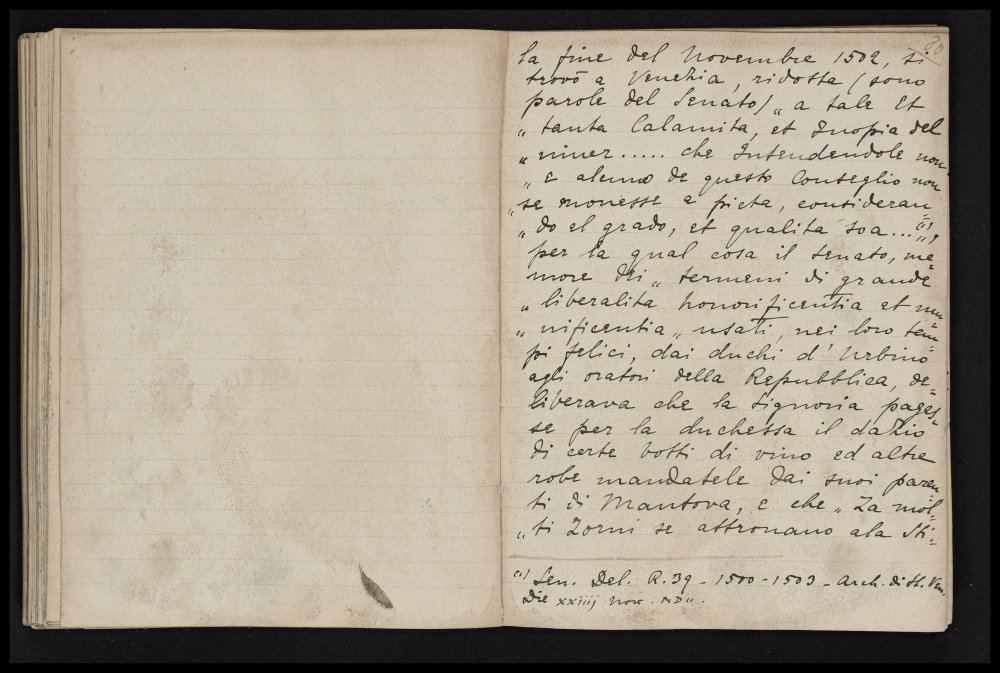 20
la fine del Novembre 1502, si
trovò a Venezia, ridotta (sono
parole del Senato) „ a tale Et
„ tanta Calamita, et Inopia del
„ viver ..... che Intendendole non
„ e alcuno de questo Conseglio non
„ se movesse a pieta, consideran=
„ do el grado, et qualita soa...„(1),
per la qual cosa il senato, me=
more dei „ termeni di grande
„ liberalita honorificentia et mu=
„ nificentia „ usati, nei loro tem=
pi felici, dai duchi d' Urbino
agli oratori della Repubblica, de=
liberava che la Signoria pages=
se per la duchessa il dazio
di certe botti di vino ed altre
robe mandatele dai suoi paren=
ti di Mantova, e che „ Za mol=
„ ti Zorni se attrovano ala Sti=
(1) Sen. Del. R. 39 - 1500-1503 - Arch. di St. Ven.
Die xxiiij nov. MDII.